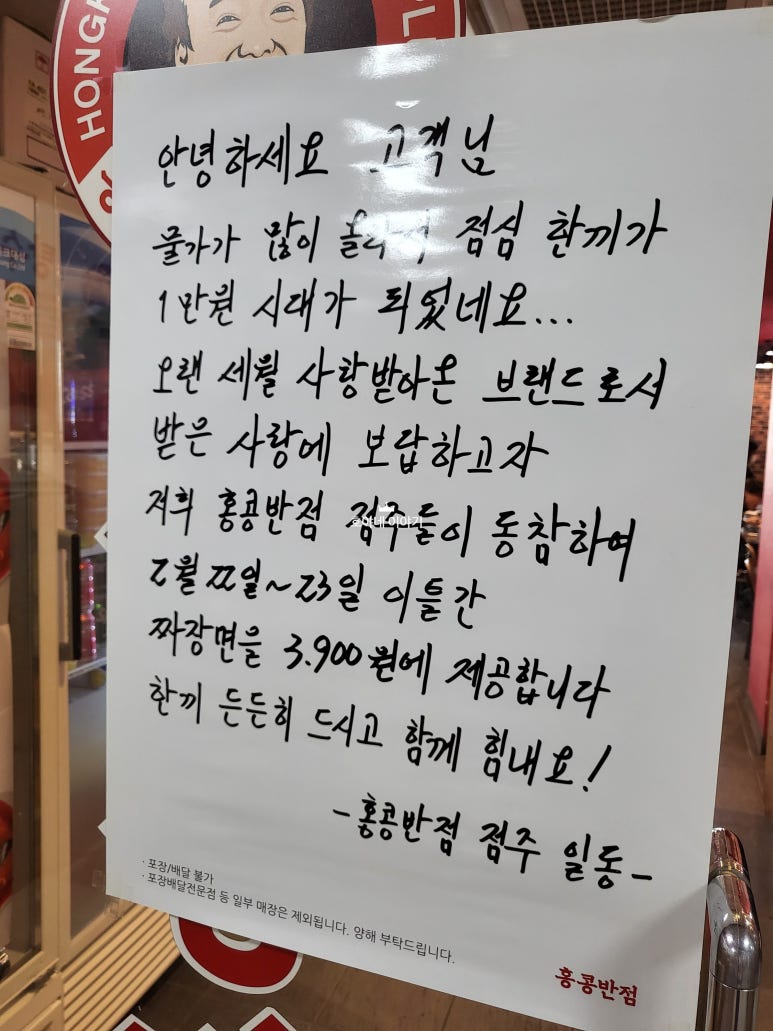 HONG
안녕하세요 고객님
물가가 많이 올라서 점심 한끼가
1만원 시대가 되었네요...
오랜 세월 사랑받아온 브랜드로서
받은 사랑에 보답하고자
저희 홍콩반점 점주들이 동참하여
2월 22일~23일 이틀간
짜장면을 3.900원에 제공합니다
한끼 든든히 드시고 함께 힘내요!
-홍콩반점 점주 일동-
· 포장/배달 불가
· 포장배달전문점 등 일부 매장은 제외됩니다. 양해 부탁드립니다.
홍콩반점